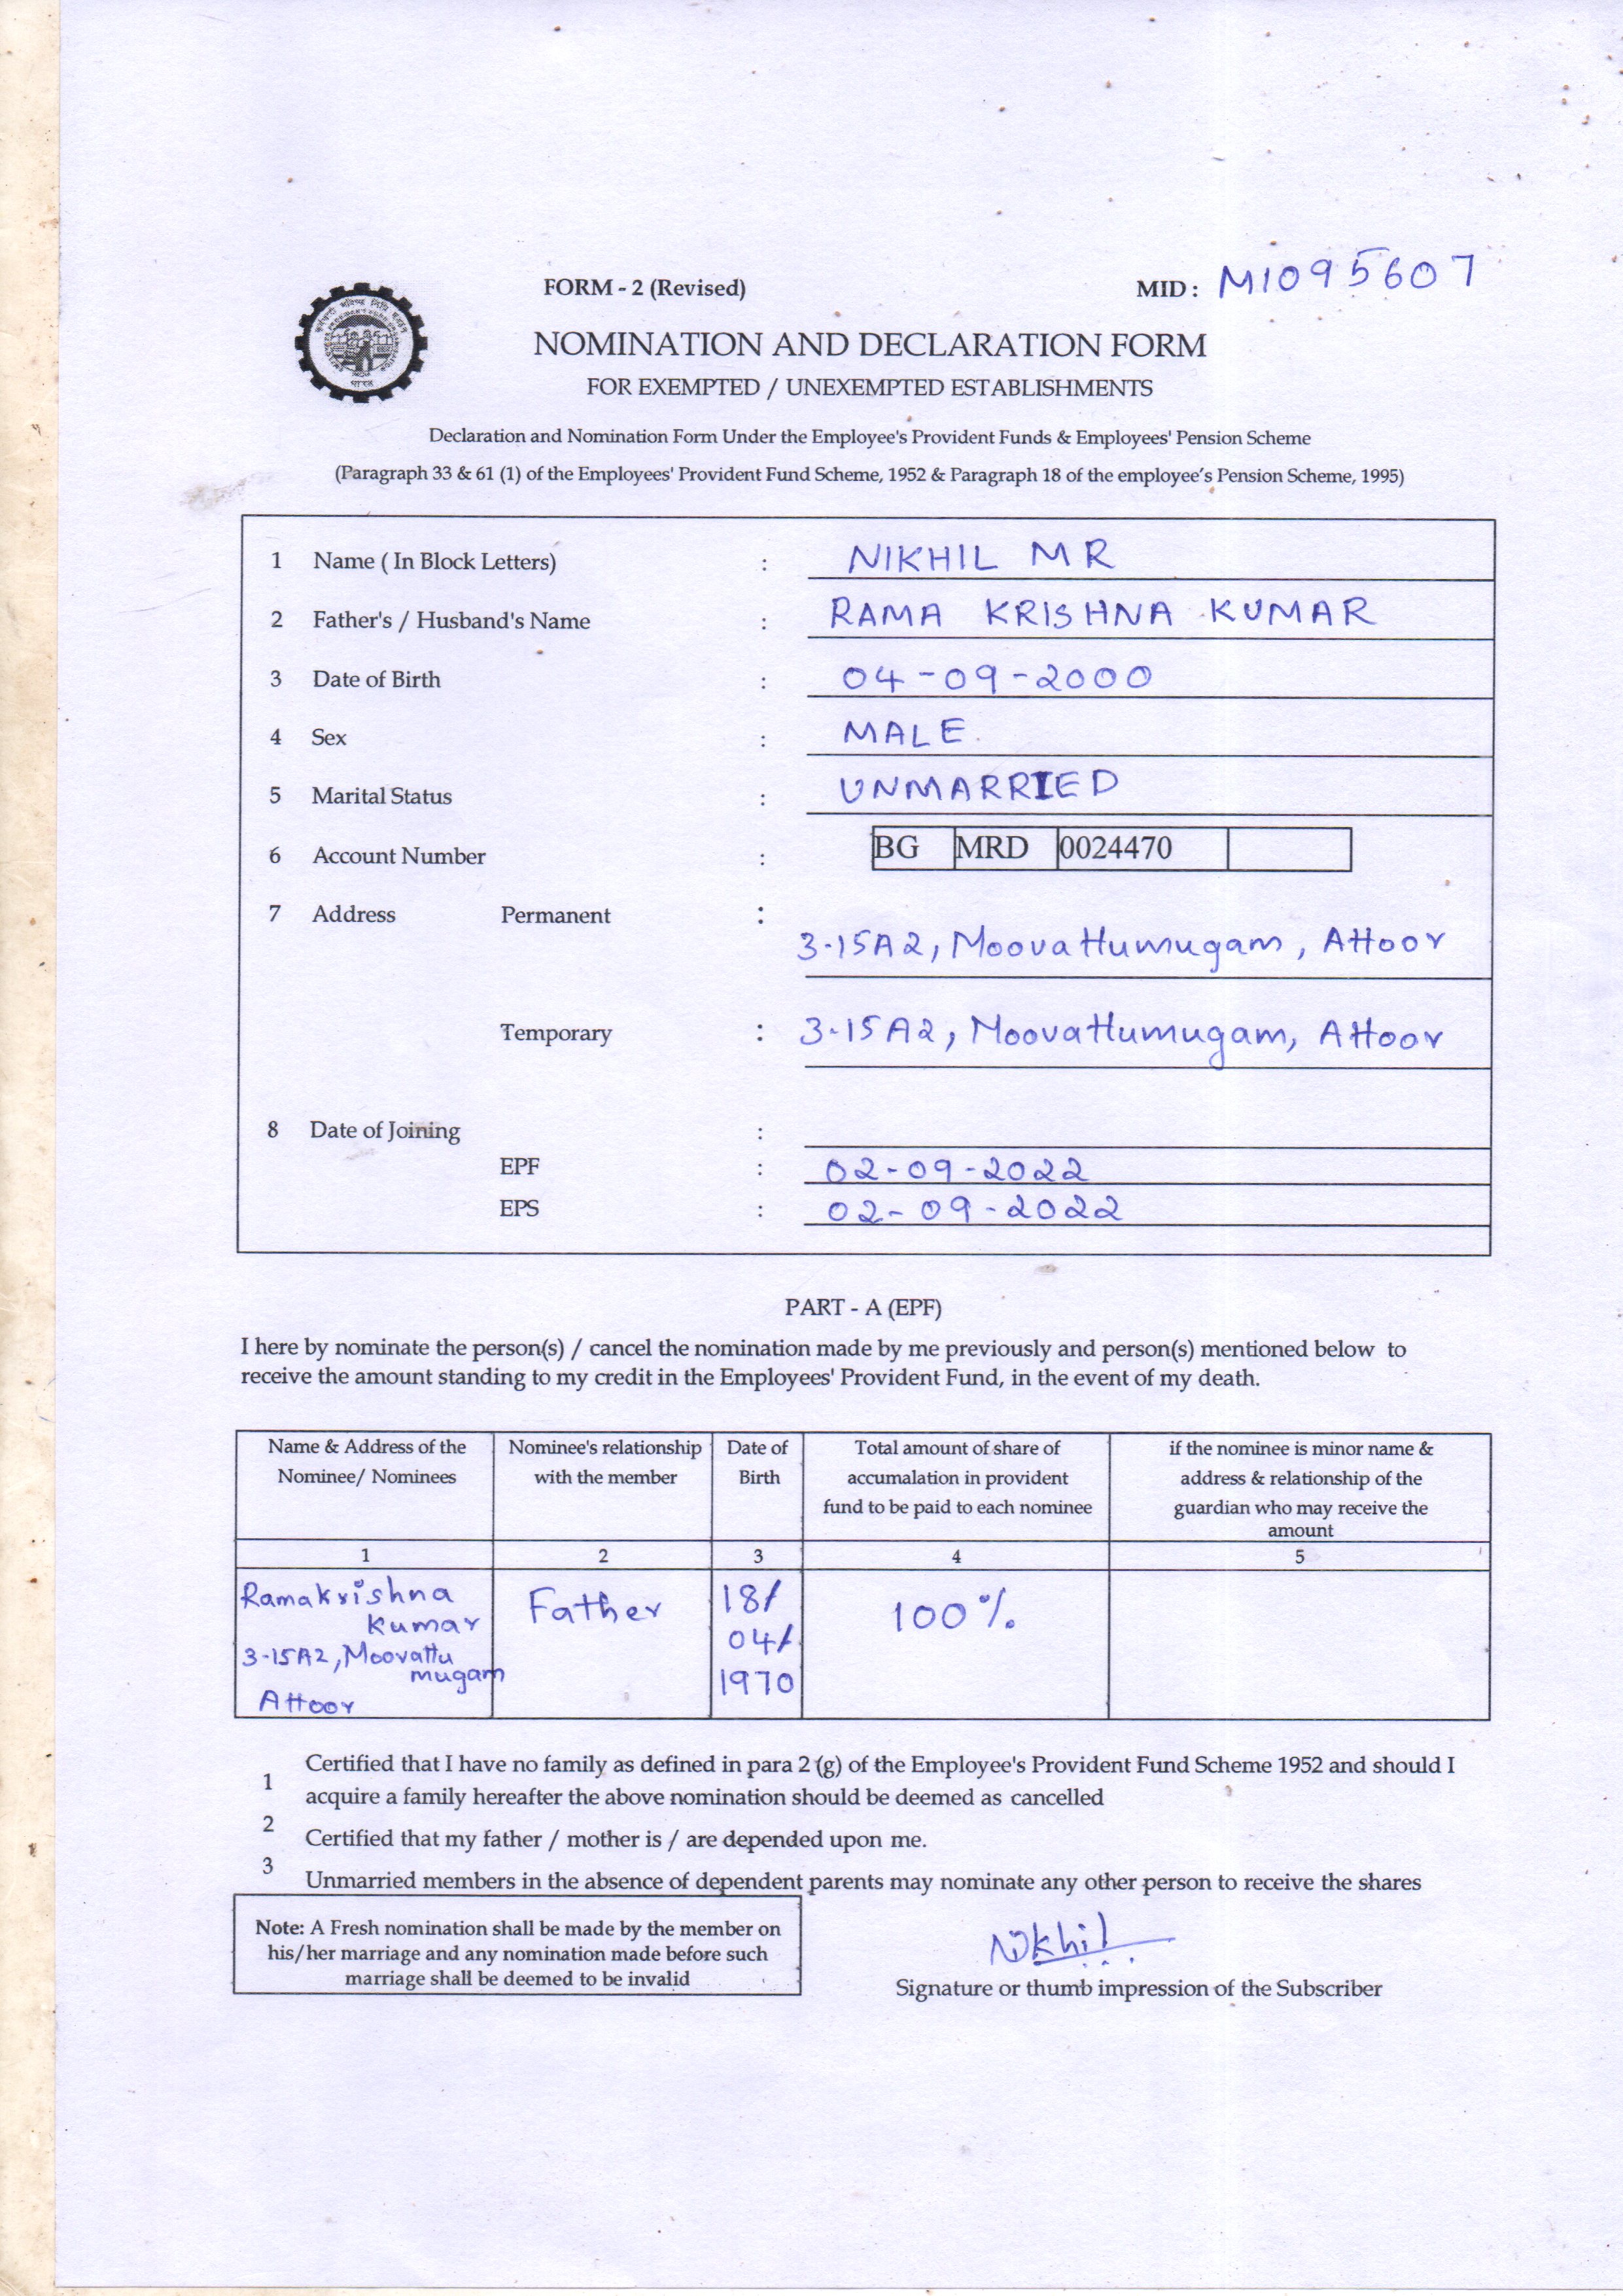 FORM - 2 (Revised)
MID : M1095607
NOMINATION AND DECLARATION FORM
FOR EXEMPTED / UNEXEMPTED ESTABLISHMENTS
Declaration and Nomination Form Under the Employee's Provident Funds & Employees' Pension Scheme
(Paragraph 33 & 61 (1) of the Employees' Provident Fund Scheme, 1952 & Paragraph 18 of the employee's Pension Scheme, 1995)
1 Name ( In Block Letters) : NIKHIL M R
2 Father's / Husband's Name : RAMA KRISHNA KUMAR
3 Date of Birth : 04-09-2000
4 Sex : MALE.
5 Marital Status : UNMARRIED
6 Account Number : BG MRD 0024470
7 Address Permanent :
3-15A2, Moovattumugam, Attoor
Temporary : 3-15A2, Moovattumugam, Attoor
8 Date of Joining :
EPF : 02-09-2022
EPS : 02-09-2022
PART - A (EPF)
I here by nominate the person(s) / cancel the nomination made by me previously and person(s) mentioned below to
receive the amount standing to my credit in the Employees' Provident Fund, in the event of my death.
Name & Address of the
Nominee/ Nominees
Nominee's relationship
with the member
Date of
Birth
Total amount of share of
accumalation in provident
fund to be paid to each nominee
if the nominee is minor name &
address & relationship of the
guardian who may receive the
amount
1 2 3 4 5
Ramakrishna
Kumar
3-15A2, Moovattu
mugam
Attoor
Father
18/
04/
1970
100%
Certified that I have no family as defined in para 2 (g) of the Employee's Provident Fund Scheme 1952 and should I
1
acquire a family hereafter the above nomination should be deemed as cancelled
2
Certified that my father / mother is / are depended upon me.
3
Unmarried members in the absence of dependent parents may nominate any other person to receive the shares
Note: A Fresh nomination shall be made by the member on
his/her marriage and any nomination made before such
marriage shall be deemed to be invalid
Nikhil
Signature or thumb impression of the Subscriber